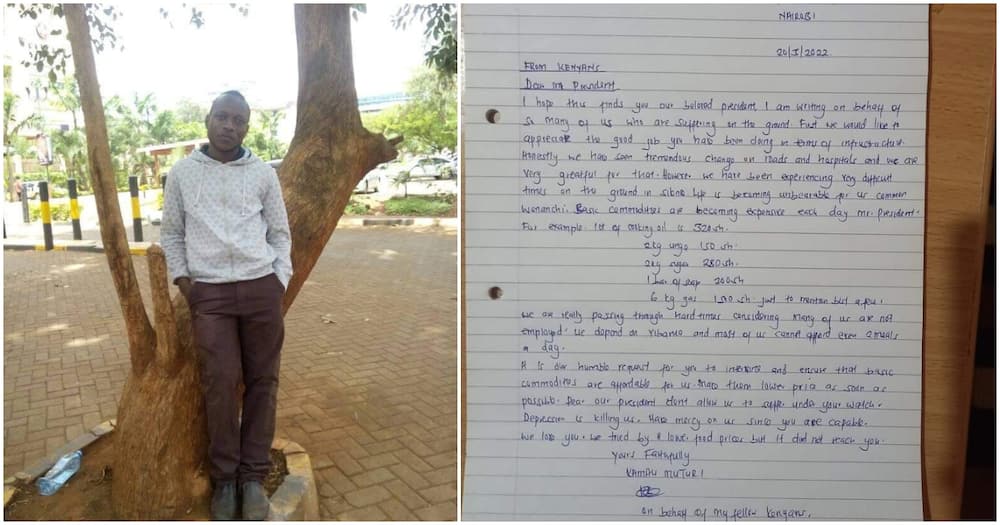 NAIROBI
20/5/2022
FROM KENYANS
Dear Mr President
I hope this finds you our beloved president. I am writing on behalf of
so many of us who are suffering on the ground. First we would like to
appreciate the good job you have been doing in terms of infrastructure.
Honestly we have seen tremendous change on roads and hospitals and we are
very greatful for that. However we have been experiencing very difficult
times on the ground Life is becoming unbearable for us common
Wananchi. Basic commodities are becoming expensive each day mr. president.
For example 1 lt of cooking oil is 320sh.
2kg unga 150 sh.
2kg sugar 280sh.
1 bar of soap 200sh
6 kg gas sh just to mention but a few.
We are really passing through hard times considering many of us are not
employed. We depend on vibarua and most of us cannot afford even 2 meals
a day.
It is our humble request for you to intervene and ensure that basic
commodities are affordable for us. Have them lower price as soon as
possible. Dear our president dont allow us to suffer under your watch.
Depression is killing us. Have mercy on us since you are capable.
We love you. We tried by # lower food prices but it did not reach you.
Yours Faithfully
KAMAU MUTURI
on behalf of my fellow kenyans.